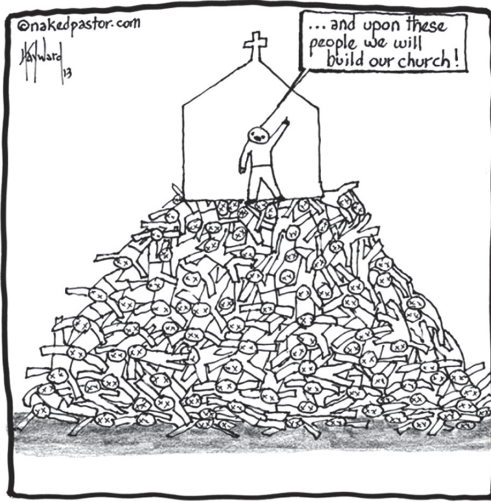 ©nakedpastor.com
Hayward
13
...and upon these
people we will
build our church!